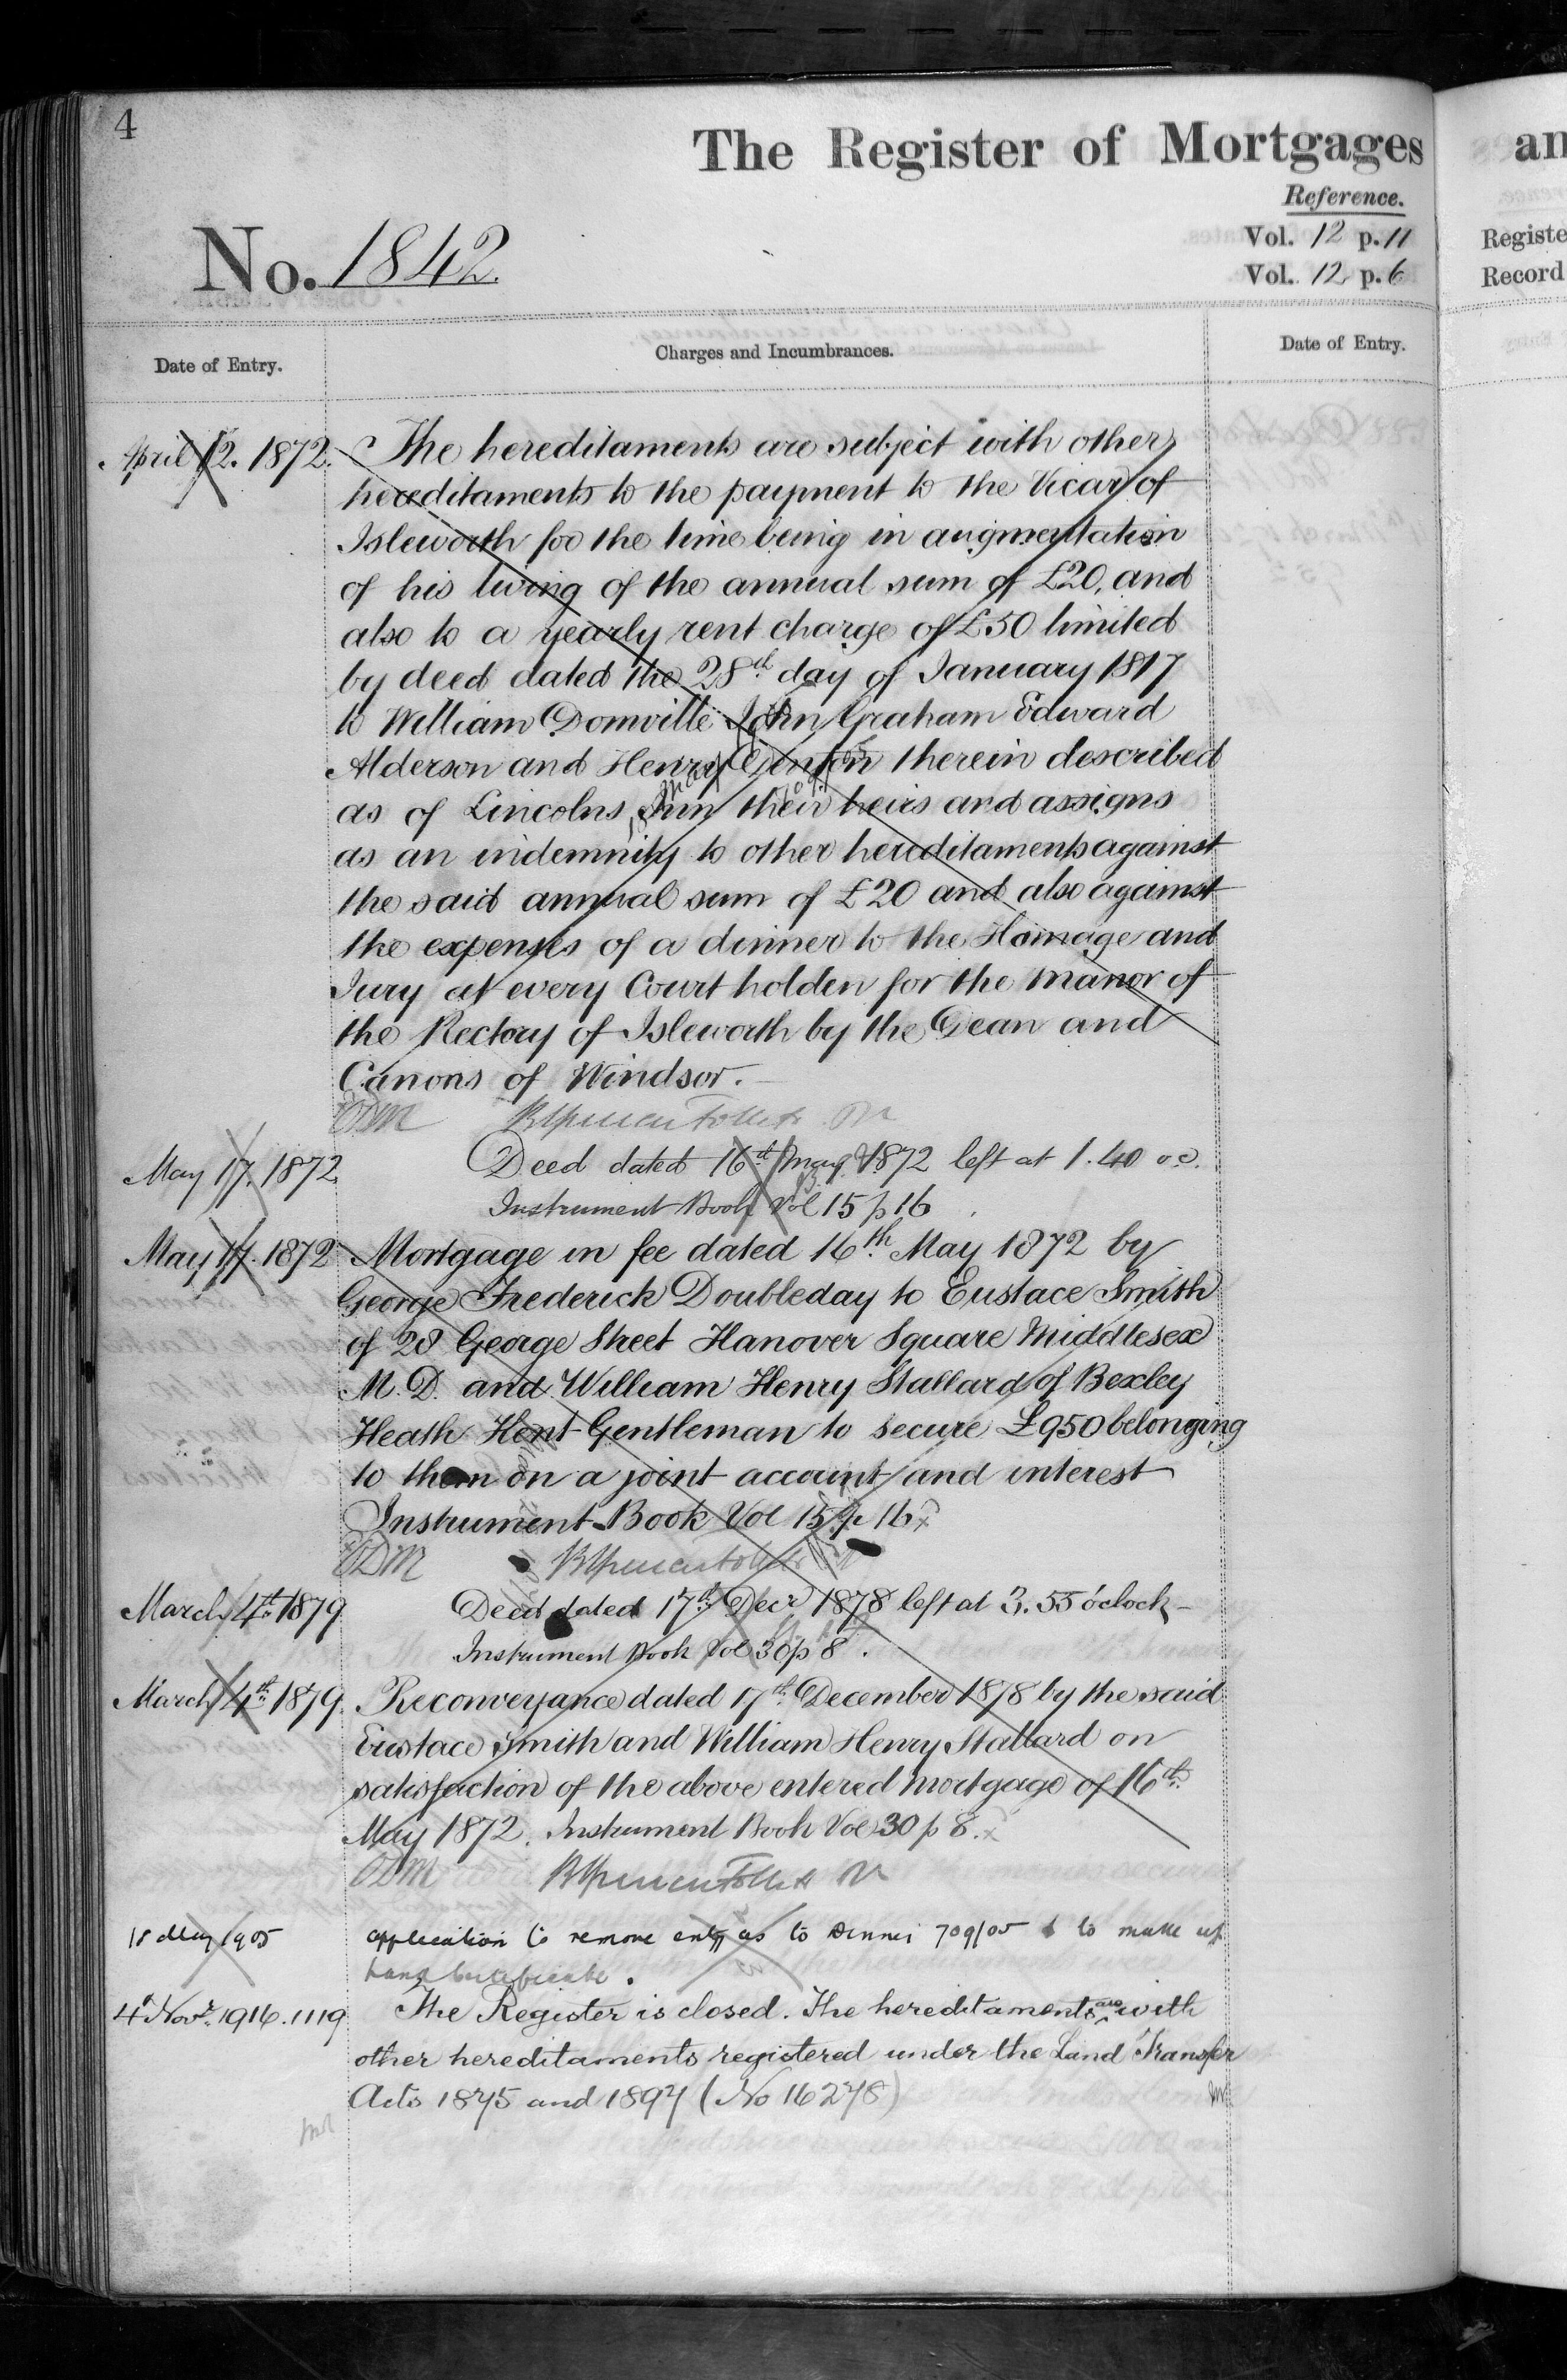 4
The Register of Mortgages
an
Reference.
No. 1842.
Vol. 12 p. 11
Vol. 12 p. 6
Registe
Record
Date of Entry.
Charges and Incumbrances.
Date of Entry.
April 12. 1872. The hereditaments are subject with other
hereditaments to the payment to the Vicar of
Isleworth for the time being in augmentation
of his living of the annual sum of £20, and
also to a yearly rent charge of £50 limited
by deed dated the 28th day of January 1817
to William Domville John Graham Edward
Alderson and Henry Denton therein described
as of Lincolns Inn their heirs and assigns
as an indemnity to other hereditaments against
the said annual sum of £20 and also against
the expenses of a dinner to the Homage and
Jury at every Court holden for the Manor of
the Rectory of Isleworth by the Dean and
Canons of Windsor.
ODM
May 17. 1872. Deed dated 16th May 1872 left at 1.40 o.c.
Instrument Book Vol 15 p 16
May 17. 1872 Mortgage in fee dated 16th May 1872 by
George Frederick Doubleday to Eustace Smith
of 28 George Street Hanover Square Middlesex
M.D. and William Henry Stallard of Bexley
Heath Kent Gentleman to secure £950 belonging
to them on a joint account and interest
Instrument Book Vol 15 p 16
ODM
March 4th 1879. Deed dated 17th Decr 1878 left at 3.55 o'clock
Instrument Book Vol 30 p 8.
March 4th 1879. Reconveyance dated 17th December 1878 by the said
Eustace Smith and William Henry Stallard on
satisfaction of the above entered mortgage of 16th
May 1872. Instrument Book Vol 30 p 8.
ODM
18 May 1905 application to remove entry as to Dinner 709/05 & to make up
Land Certificate.
4th Novr. 1916. 1119 The Register is closed. The hereditaments are with
other hereditaments registered under the Land Transfer
Acts 1875 and 1897 (No 16278)